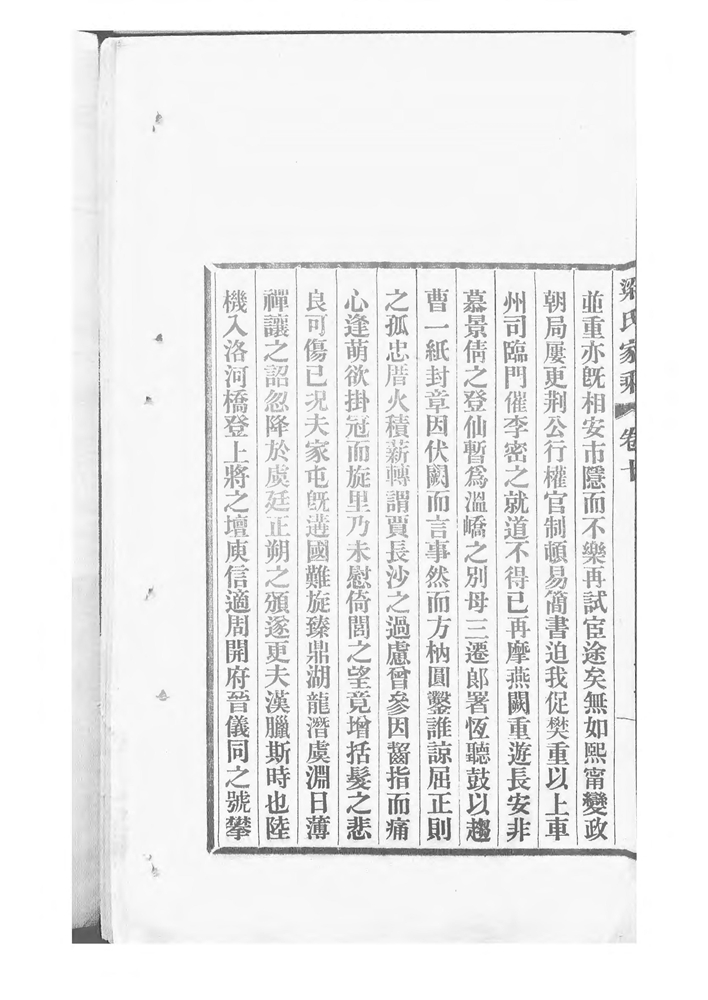 梁氏家乘 卷十
並重亦旣相安市隱而不樂再試宦途矣無如熙甯變政
朝局屢更荆公行權官制頓易簡書迫我促樊重以上車
州司臨門催李密之就道不得已再摩燕闕重遊長安非
慕景倩之登仙暫爲溫嶠之別母三遷郞署恆聽鼓以趨
曹一紙封章因伏闕而言事然而方枘圓鑿誰諒屈正則
之孤忠厝火積薪轉謂賈長沙之過慮曾參因齧指而痛
心逢萌欲掛冠而旋里乃未慰倚閭之望竟增括髮之悲
良可傷已况夫家屯旣遘國難旋臻鼎湖龍潛虞淵日薄
禪讓之詔忽降於虞廷正朔之頒遂更夫漢臘斯時也陸
機入洛河橋登上將之壇庾信適周開府晉儀同之號攀